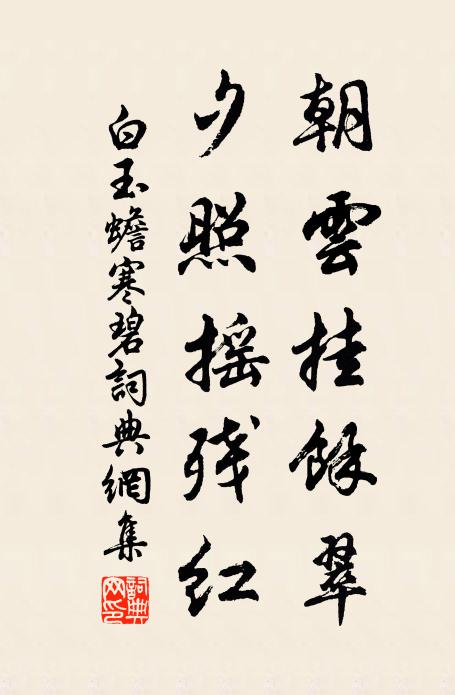 朝雲挂餘翠
夕照摇残红
白玉蟾寒碧詞典網集
詞典網印